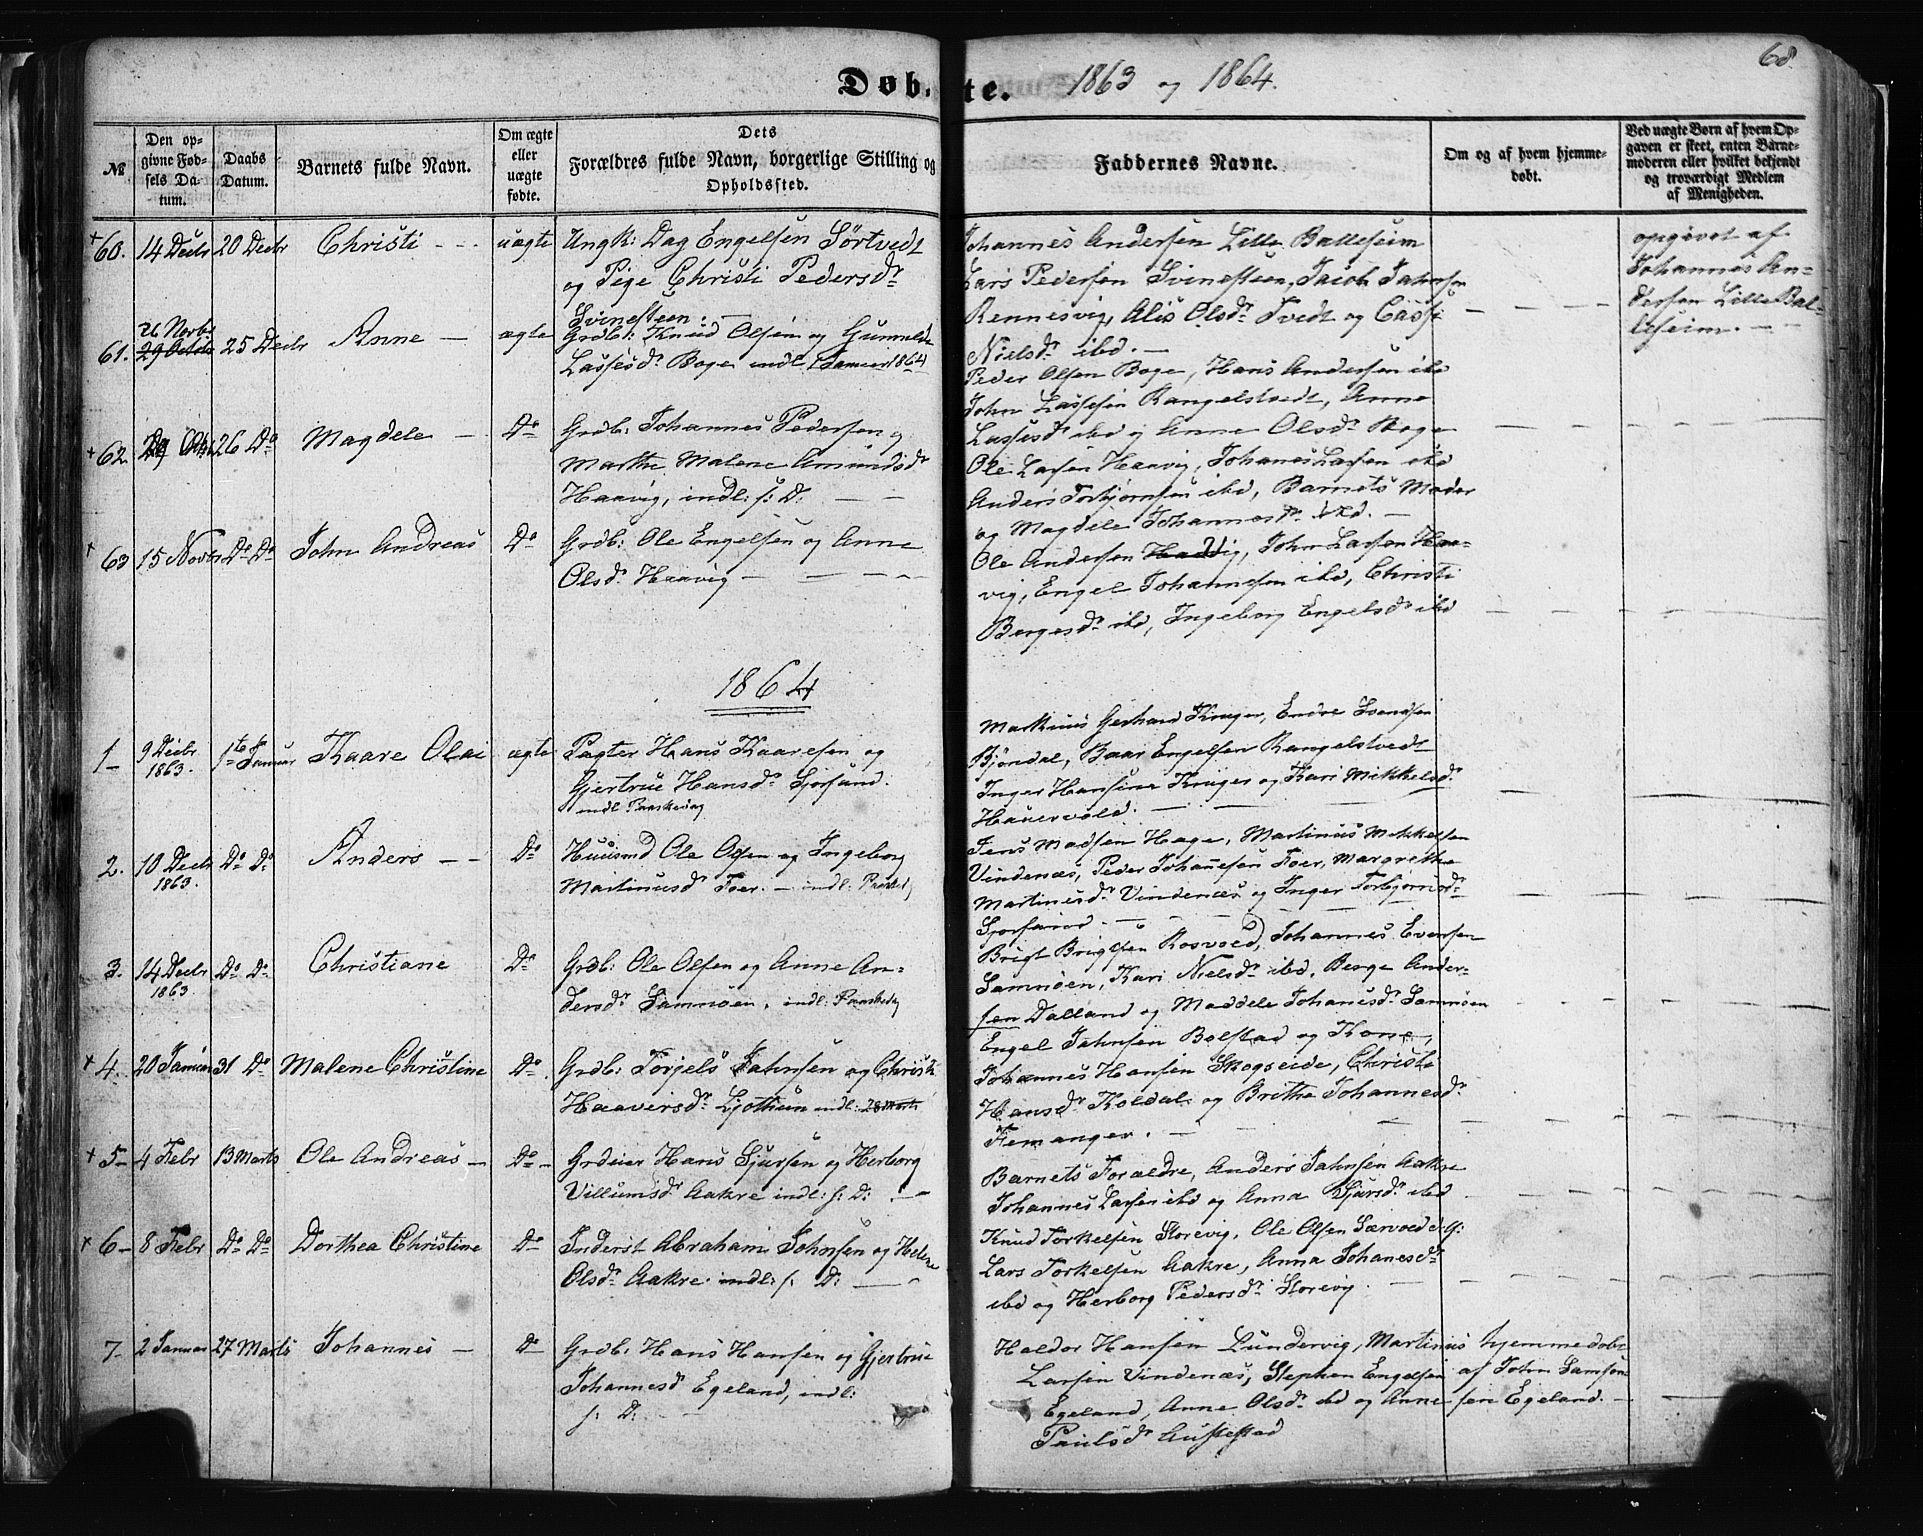 68.
Døb-te. 1863 og 1864.
№
Den op-
givne Fød-
sels Da-
tum.
Daabs
Datum.
Barnets fulde Navn.
Om ægte
eller
uægte
fødte.
Dets
Forældres fulde Navn, borgerlige Stilling og
Opholdssted.
Faddernes Navne.
Om og af hvem hjemme-
døbt.
Ved uægte Børn af hvem Op-
gaven er skeet, enten Barne-
moderen eller hvilket bekjendt
og troværdigt Medlem
af Menigheden.
+ 60. 14 Decbr 20 Decbr Christi - - - uægte Ungk: Dag Engelsen Sørtvedt
og Pige Christi Pedersdr
Svinesteen: —
Johannes Andersen Lille Balleseim
Lars Pedersen Svinesteen, Jacob Jahnsen
Rennesvig, Alis Olsdr Tvedt og Cassi
Nielsdr ibd. —
opgivet af
Johannes An-
dersen Lille Bal-
leseim. - -
61. 26 Novbr 29 Octbr 25 Decbr Anne — ægte Grdb: Knud Olsen og Gunnelde
Lassesdr Boge indl. 1 Januar 1864
Peder Olsen Boge, Hans Andersen ibd
John Lassesen Rangelstvedt, Anne
Lassesdr ibd og Anne Olsdr Boge
+ 62. 26 Do Magdele — Do Grdb: Johannes Pedersen og
Marthe Malene Amundsdr
Haavig, indl: s: D: — —
Ole Larsen Haavig, Johanes Larsen ibd
Anders Torbjørnsen ibd, Barnets Moder
og Magdele Johannesdr ibd. —
+ 63 15 Novbr Do Do John Andreas Do Grdb: Ole Engelsen og Anne
Olsdr Haavig — — — —
Ole Andersen Haavig, John Larsen Haa-
vig, Engel Johannesen ibd, Christi
Bergesdr ibd, Ingeborg Engelsdr ibd
1864
1 — 9 Decbr 1863. 1te Januar Kaare Olai ægte Pagter Hans Kaaresen og
Gjertrue Hansdr Sjorsand.
indl Paaskedag
Markus Gerhard Krüger, Endre Svendsen
Bjørndal, Baar Engelsen Rangelstvedt
Inger Hansine Krüger og Kari Mikkelsdr
Hauervold. — — —
2. 10 Decbr 1863. Do Do Anders - - Do Huusmd Ole Olsen og Ingeborg
Martinusdr Foer. — indl: Paaskedg
Jens Madsen Hage, Martinus Mikkelsen
Vindenæs, Peder Johanesen Foer, Margrethe
Martinesdr Vindenæs og Inger Torbjørnsdr
Sjorsand - — — —
3. 14 Decbr 1863. Do Do Christiane Do Grdb: Ole Olsen og Anne An-
dersdr Samnøen. indl: Paaskedag
Brigt Brigtsen Rosvold, Johannes Evensen
Samnøen, Kari Nielsdr ibd, Berge Ander-
sen Dalland og Maddele Johanesdr Samnøen
+ 4. 20 Januar 31 Do Malene Christine Do Grdb: Torjels Jahnsen og Christi
Haaversdr Ljothun indl: 28 Marts
Engel Jahnsen Bolstad og Kone,
Johannes Hansen Skogseide, Christi
Hansdr Koldal: og Brithe Johannesdr
Femanger. — — —
+ 5 — 4 Febr 13 Marts Ole Andreas — Do — Grdeier Hans Sjursen og Herborg
Villumsdr Aakre indl: s: D: — "
Barnets Forældre, Anders Jahnsen Aakre
Johannes Larsen ibd og Anna Sjursdr ibd
+ 6 — 8 Febr Do Do Dorthea Christine Do Inderst Abraham Johnsen og Helene
Olsdr Aakre. indl: s: D: — "
Knud Torkelsen Storevig, Ole Olsen Særvold
Lars Torkelsen Aakre, Anna Johanesdr
ibd og Herborg Pedersdr Storevig
7 — 2 Januar 27 Marts Johannes — Do Grdb: Hans Hansen og Gjertrue
Johannesdr Egeland, indl:
s: D: —
Haldor Hansen Lundervig, Martinus
Larsen Vindenæs, Stephen Engelsen
Egeland, Anne Olsdr ibd og Anne
Paulsdr Austestad
hjemmedøbt
af John Samson-
sen Egeland. —